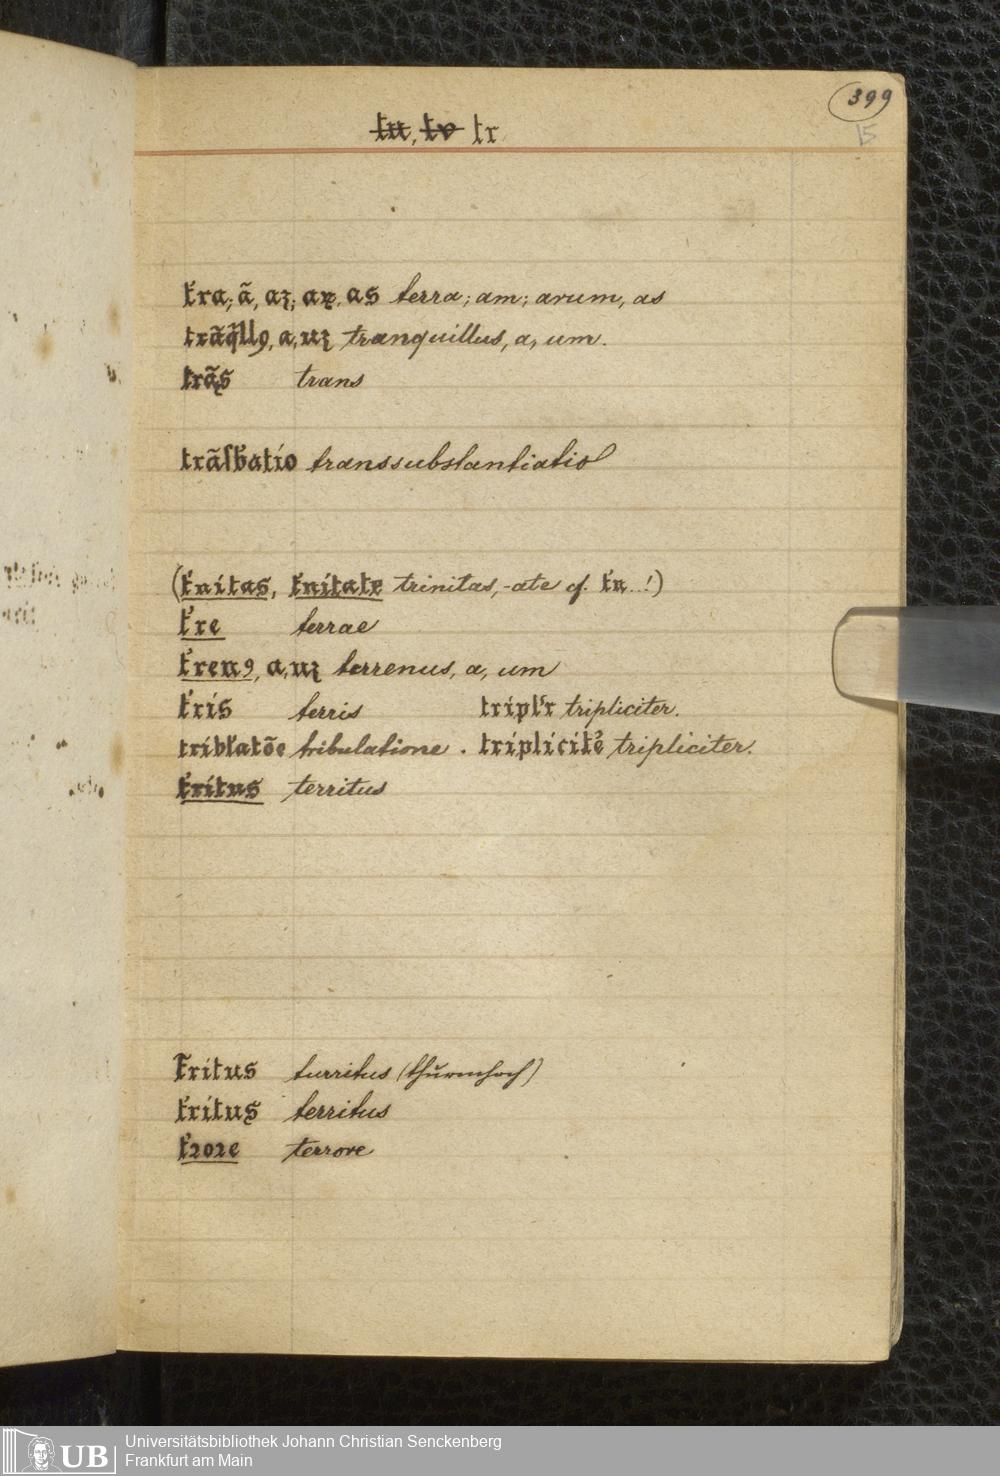 399
tu, to tr
15
t̄ra; ā, aꝫ; aꝝ, as terra; am; arum, as
trāq̄llꝯ, a, uꝫ tranquillus, a, um.
trās trans
trāſbatio transsubstantiatio
(t̄nitas, t̄nitate trinitas, -ate cf. tn...!)
t̄re terrae
t̄renꝯ, a, uꝫ terrenus, a, um
t̄ris terris tripl'r tripliciter.
tribl'atōe tribulatione. triplicit̄ tripliciter.
t̄ritus territus
t̄ritus turritus (thurmhoch)
t̄ritus territus
t̄ꝛoꝛe terrore
UB
Universitätsbibliothek Johann Christian Senckenberg
Frankfurt am Main